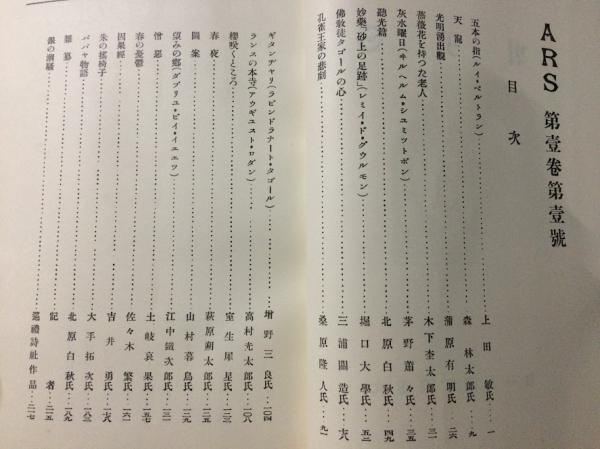 ARS 第壹卷第壹號
目次
五本の指(ルイ・ベルトラン)……上田敏氏…一
天龍……森林太郎氏…九
光明湧出觀……蒲原有明氏…二六
薔薇花を持つた老人……木下杢太郎氏…三一
灰水曜日(ヰルヘルム・シユミツトボン)……茅野蕭々氏…三五
聽光篇……北原白秋氏…四九
妙樂「砂上の足跡」(レミイ・ド・グウルモン)……堀口大學氏…五三
佛敎徒タゴールの心……三浦關造氏…六八
孔雀王家の悲劇……桑原隆人氏…九一
ギタンヂャリ(ラビンドラナート・タゴール)……增野三良氏…一〇四
ランスの本寺(アウギユスト・ロダン)……高村光太郎氏…一〇八
櫻咲くところ……室生犀星氏…一二三
春夜……萩原朔太郎氏…一二五
圖案……山村暮鳥氏…一二九
望みの鄕(ダブリユ・ビイ・イエエツ)……江中鐵次郎氏…一三一
憎惡……土岐哀果氏…一五七
春の憂鬱……佐々木繁氏…一六一
因果經……吉井勇氏…一七八
朱の搖椅子……大手拓次氏…一八三
パパヤ物語……北原白秋氏…一八九
雜纂……記者…二一五
銀の潮騷……巡禮詩社作品…二一七